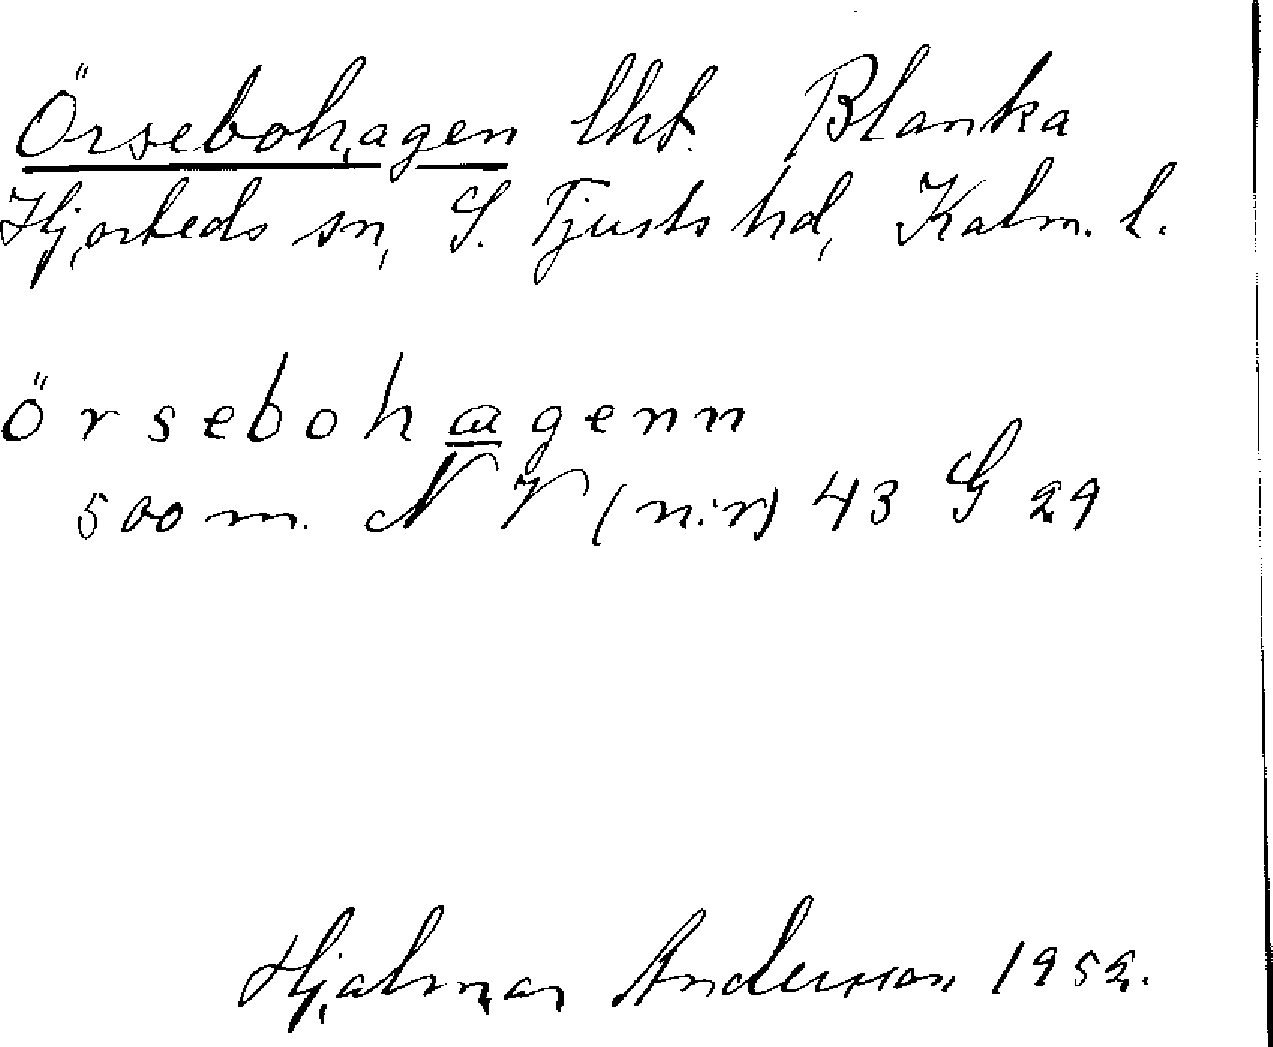 Örsebohagen lht. Blanka
Hjorteds sn, S. Tjusts hd, Kalm. l.
örsebohagenn
500 m. NV (n:r) 43 G 29
Hjalmar Andersson 1952.